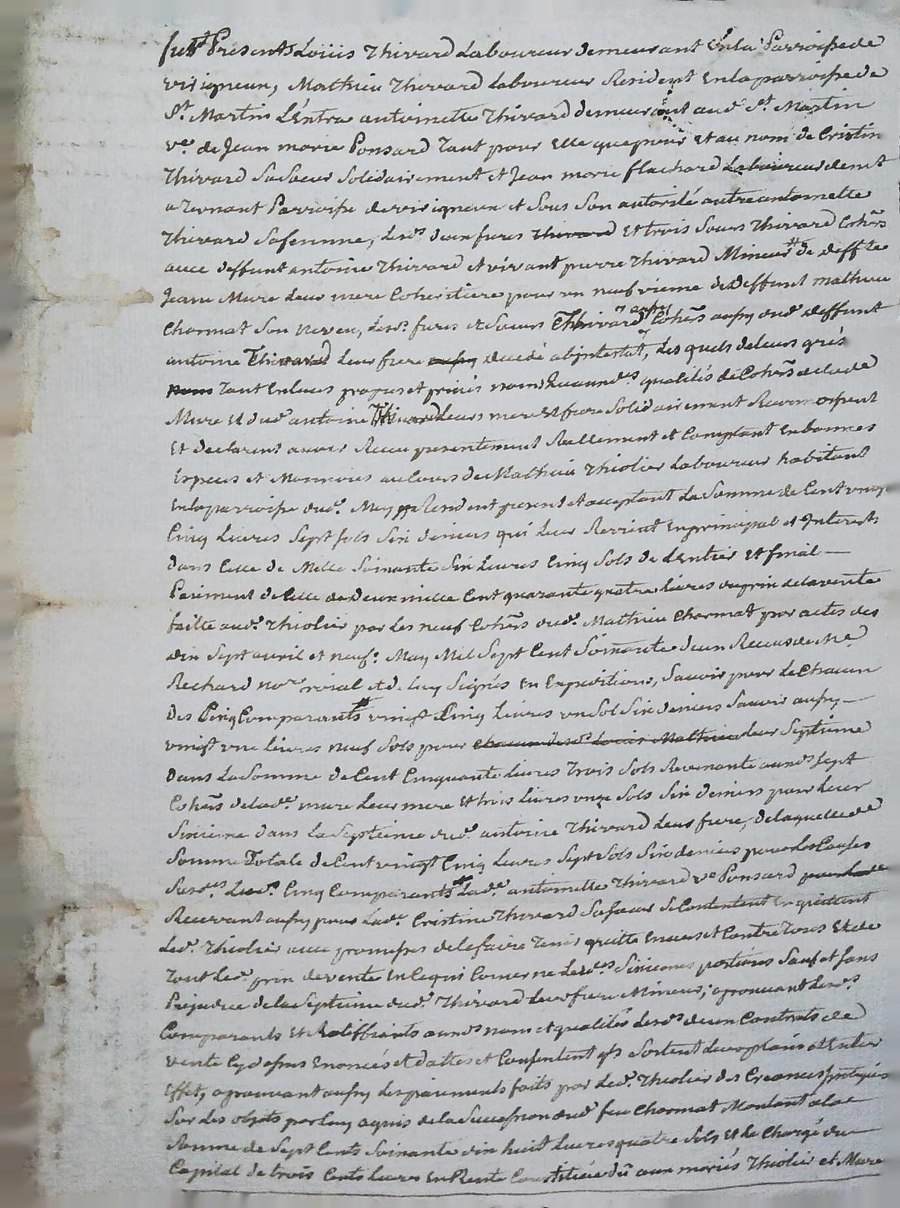 furt Presents Loüis Thivard Laboureur demeurant En la Parroisse de
virigneux, Mathieu Thivard laboureur Resident En la parroisse de
St. Martin L'Entra antoinette Thivard demeurant aud. St. Martin
ve. de Jean marie Ponsard Tant pour Elle que pour Et au nom de Cristin
Thivard Sa Soeur Solidairement et Jean marie flachard Laboureur demt
a Parroisse de virigneux et Sous Son autorité autre antoinette
Thivard Sa femme, Lesd. deux freres Thivard Et trois Seurs Thivard Cohers
avec deffunt antoine Thivard Et vivant pierre Thivard Mineur de deffte
Jeane Mure Leur mere Coheritiere pour un neufvieme de deffunt mathieu
Charmat Son neveu, Lesd. freres et Soeurs Thivard Cohers aussy dud. deffunt
antoine Thivard Leur frere aussy decedé abjntestat, Les quels de leurs grés
Tant En leurs propres et privés noms qualités de Cohers de lade
Mure et dud. antoine Thivard Leurs mere Et frere Solidairement
Et declarent avoir Receu presentement Reellement et Comptant En bonnes
Especes et Monnoies au Cours de Mathieu Thiolier Laboureur habitant
En la parroisse dud. present et acceptant La Somme de Cent vingt
Cinq Livres Sept sols Six deniers qui Leur En principal et Interets
dans Celle de Mille Soixante Six Livres Cinq Sols de L'Entier Et final
Paiement de Celle de Deux mille Cent quarante quatre Livres du prix de la vente
faitte aud. Thiolier par Les neuf Cohers dud. Mathieu Charmat par actes des
dix Sept avril et neuf. May Mil Sept Cent Soixante deux Receus de Me
Rechard nore roial et de luy Signés En Expeditions, Sçavoir pour le Chacun
Des Cinq Comparants vingt Cinq Livres un Sol Six deniers Sçavoir aussy
vingt une Livres neuf Sols pour chacun desd. Louis Mathieu leur Septieme
Dans La Somme de Cent Cinquante Livres Trois Sols Revenante auxd. Sept
Cohers de lade. mure Leur mere Et trois Livres onze Sols Six deniers pour Leur
Sixieme dans la Septieme dud. antoine Thivard Leur frere, de laquelle de
Somme Totale de Cent vingt Cinq Livres Sept Sols Six deniers pour Les Causes
Susdes Lesd. Cinq Comparants Lade. antoinette Thivard ve Ponsard
Recevant aussy pour Lade. Cristine Thivard Sa Soeur Se Contentent En quittent
Led. Thiolier avec promesses de le faire Tenir quitte Envers et Contre Tous Et de
Tout Led. prix de vente En Ce qui Concerne Lesdes Sixiemes portions Sauf et Sans
Prejudice de la Septieme dud. Thivard Leur frere Mineur; aprouvant Lesd.
Comparants Et Ratiffiants auxd. nom et qualités Lesd. deux Contrats de
vente Cy dessus Enoncés et dattés et Consentent qls Sortent Leur plein Et Entier
Effet, aprouvant aussy Les paiements faits par Led. Thiolier des Creances
Sur Les objets par luy aquis de la Succession dud. feu Charmat Montant a la
Somme de Sept Cents Soixante dix huit Livres quatre Sols Et la Charge du
Capital de trois Cents Livres En Rente Constituée dû aux mariés Thiolier et Mure